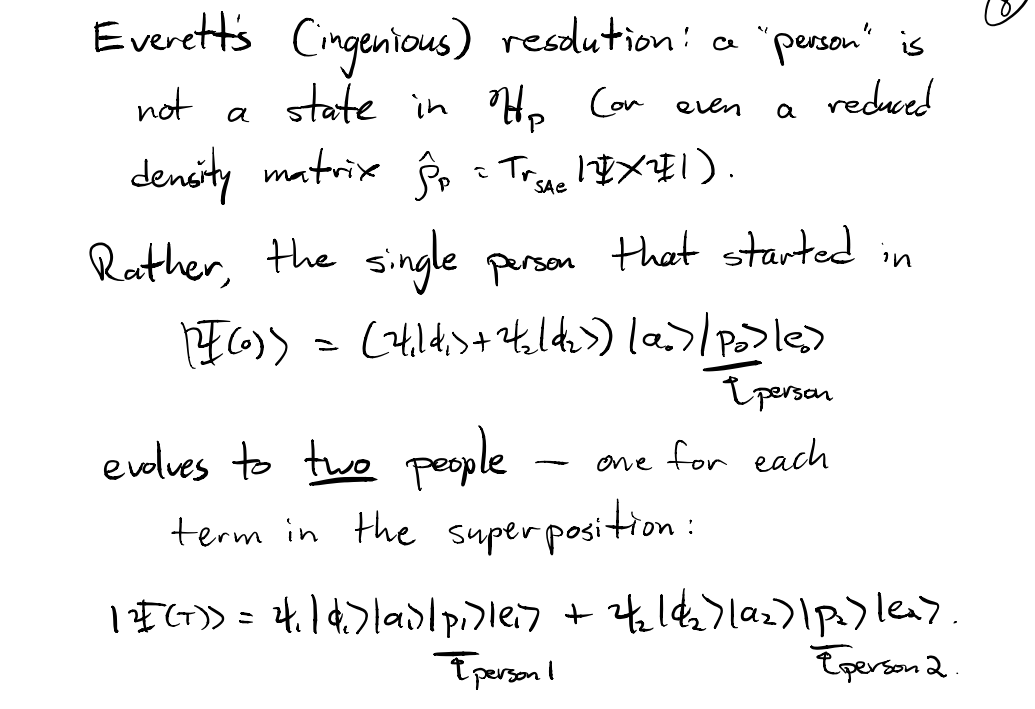 (8)
Everett's (ingenious) resolution: a "person" is
not a state in ℋ_P (or even a reduced
density matrix ρ̂_P = Tr_SAe |Ψ⟩⟨Ψ|).
Rather, the single person that started in
|Ψ(0)⟩ = (ψ₁|ϕ₁⟩+ψ₂|ϕ₂⟩) |a₀⟩|p₀⟩|e₀⟩
↑ person
evolves to two people – one for each
term in the superposition:
|Ψ(T)⟩ = ψ₁|ϕ₁⟩|a₁⟩|p₁⟩|e₁⟩ + ψ₂|ϕ₂⟩|a₂⟩|p₂⟩|e₂⟩.
↑ person 1 ↑ person 2.